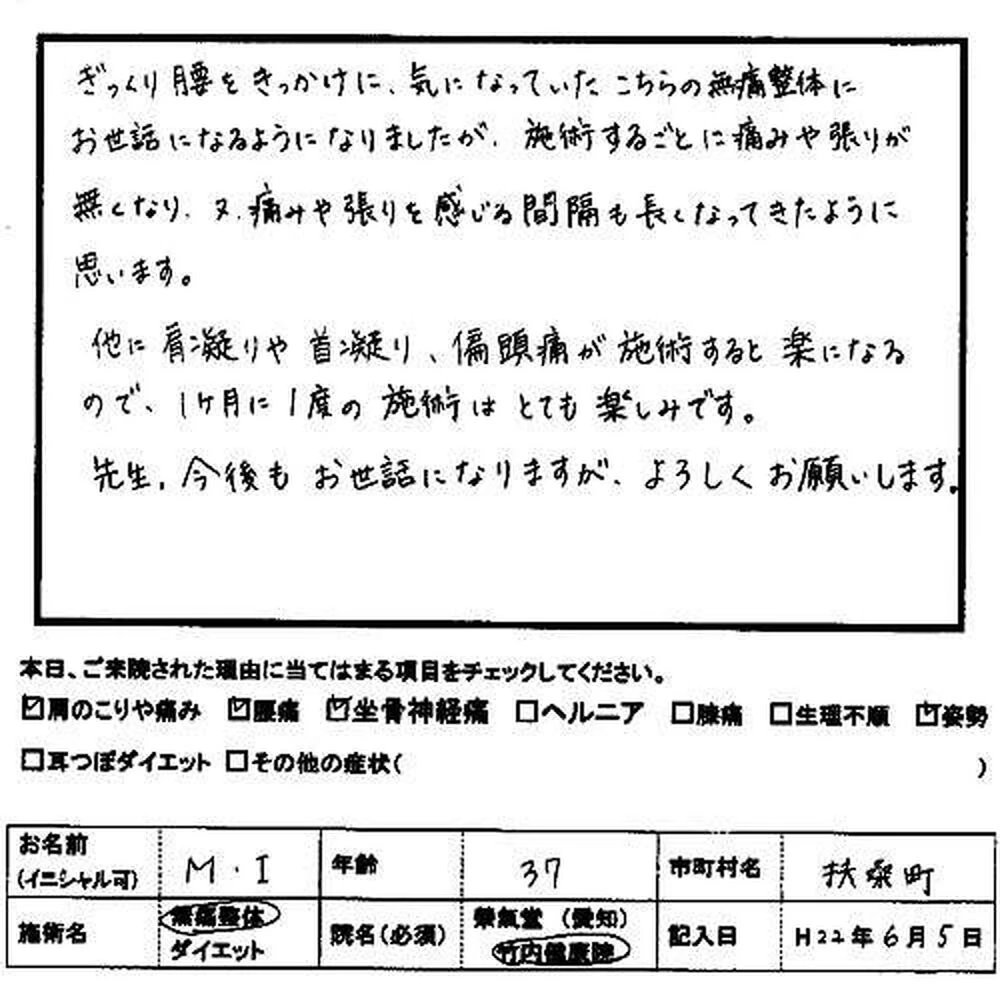 ぎっくり腰をきっかけに、気になっていたこちらの無痛整体に
お世話になるようになりましたが、施術するごとに痛みや張りが
無くなり、又、痛みや張りを感じる間隔も長くなってきたように
思います。
他に肩凝りや首凝り、偏頭痛が施術すると楽になる
ので、1ヶ月に1度の施術はとても楽しみです。
先生、今後もお世話になりますが、よろしくお願いします。
本日、ご来院された理由に当てはまる項目をチェックしてください。
☑肩のこりや痛み ☑腰痛 ☑坐骨神経痛 □ヘルニア □膝痛 □生理不順 ☑姿勢
□耳つぼダイエット □その他の症状( )
お名前 (イニシャル可) M・I 年齢 37 市町村名 扶桑町
施術名 無痛整体 ダイエット 院名(必須) 榮氣堂(愛知) 竹内健康院 記入日 H22年6月5日